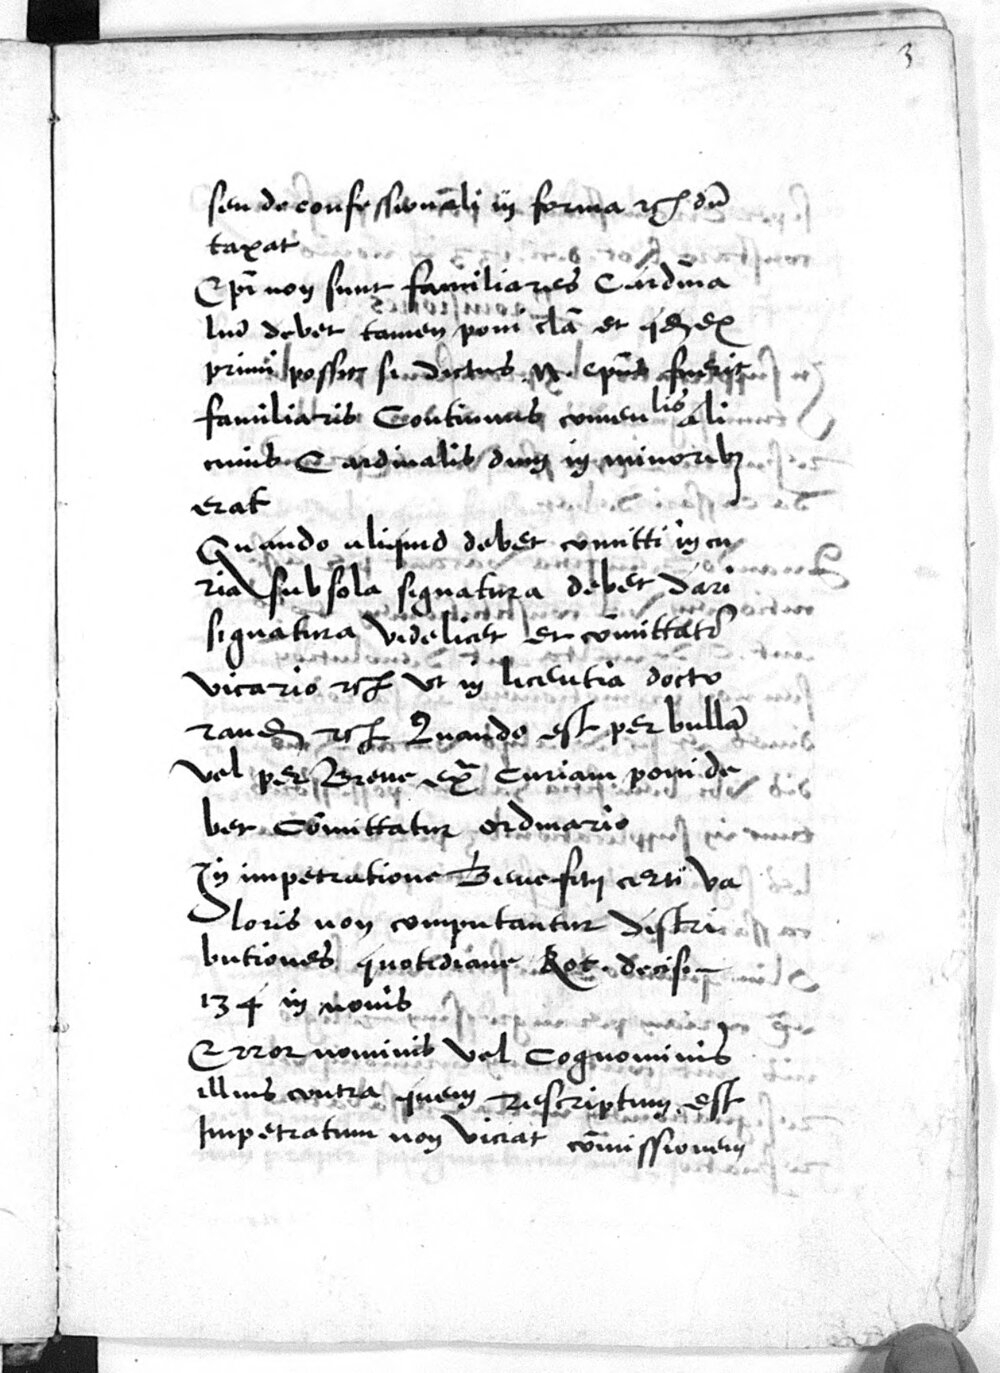 3
seu de confessionāli in forma rc̄ dū
taxat
Ep̄i non sunt familiares Cardina
liū debet tamen poni clā et
primi possit si dictus .N. ep̄us fuerit
familiaris Continuus comen lis ali
cuius Cardinalis dum in minoribꝫ
erat
Quando aliquid debet comitti in cu
ria sub sola signatura debet dari
signatura videlicet et com̄ittatr
vicario rc̄ ut in licentia docto
randi rc̄ Quando est per bullā
vel per Breve ex̄ Curiam poni de
bet Com̄ittatur ordinario
In impetratione Benefitij certi va
loris non computantur distri
butiones quotidiane Rot. decis.
134 in novis
Error nominis vel Cognominis
illius contra quem rescriptum est
Impetratum non viciat com̄issionem